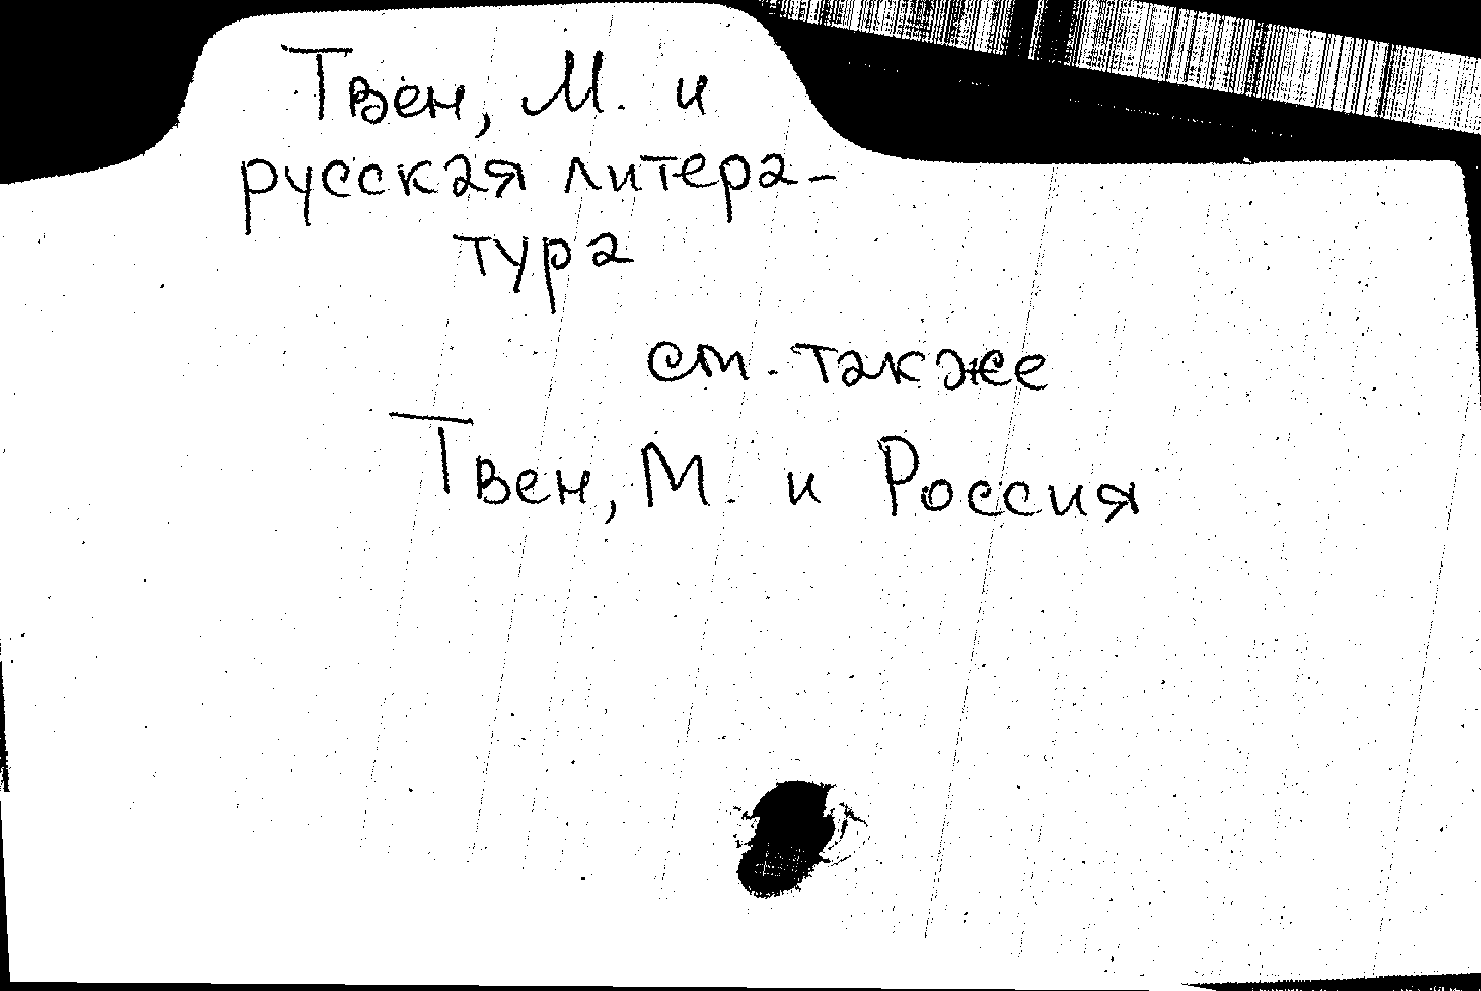 Твен, М. и
русская литера-
тура
см. также
Твен, М. и Россия